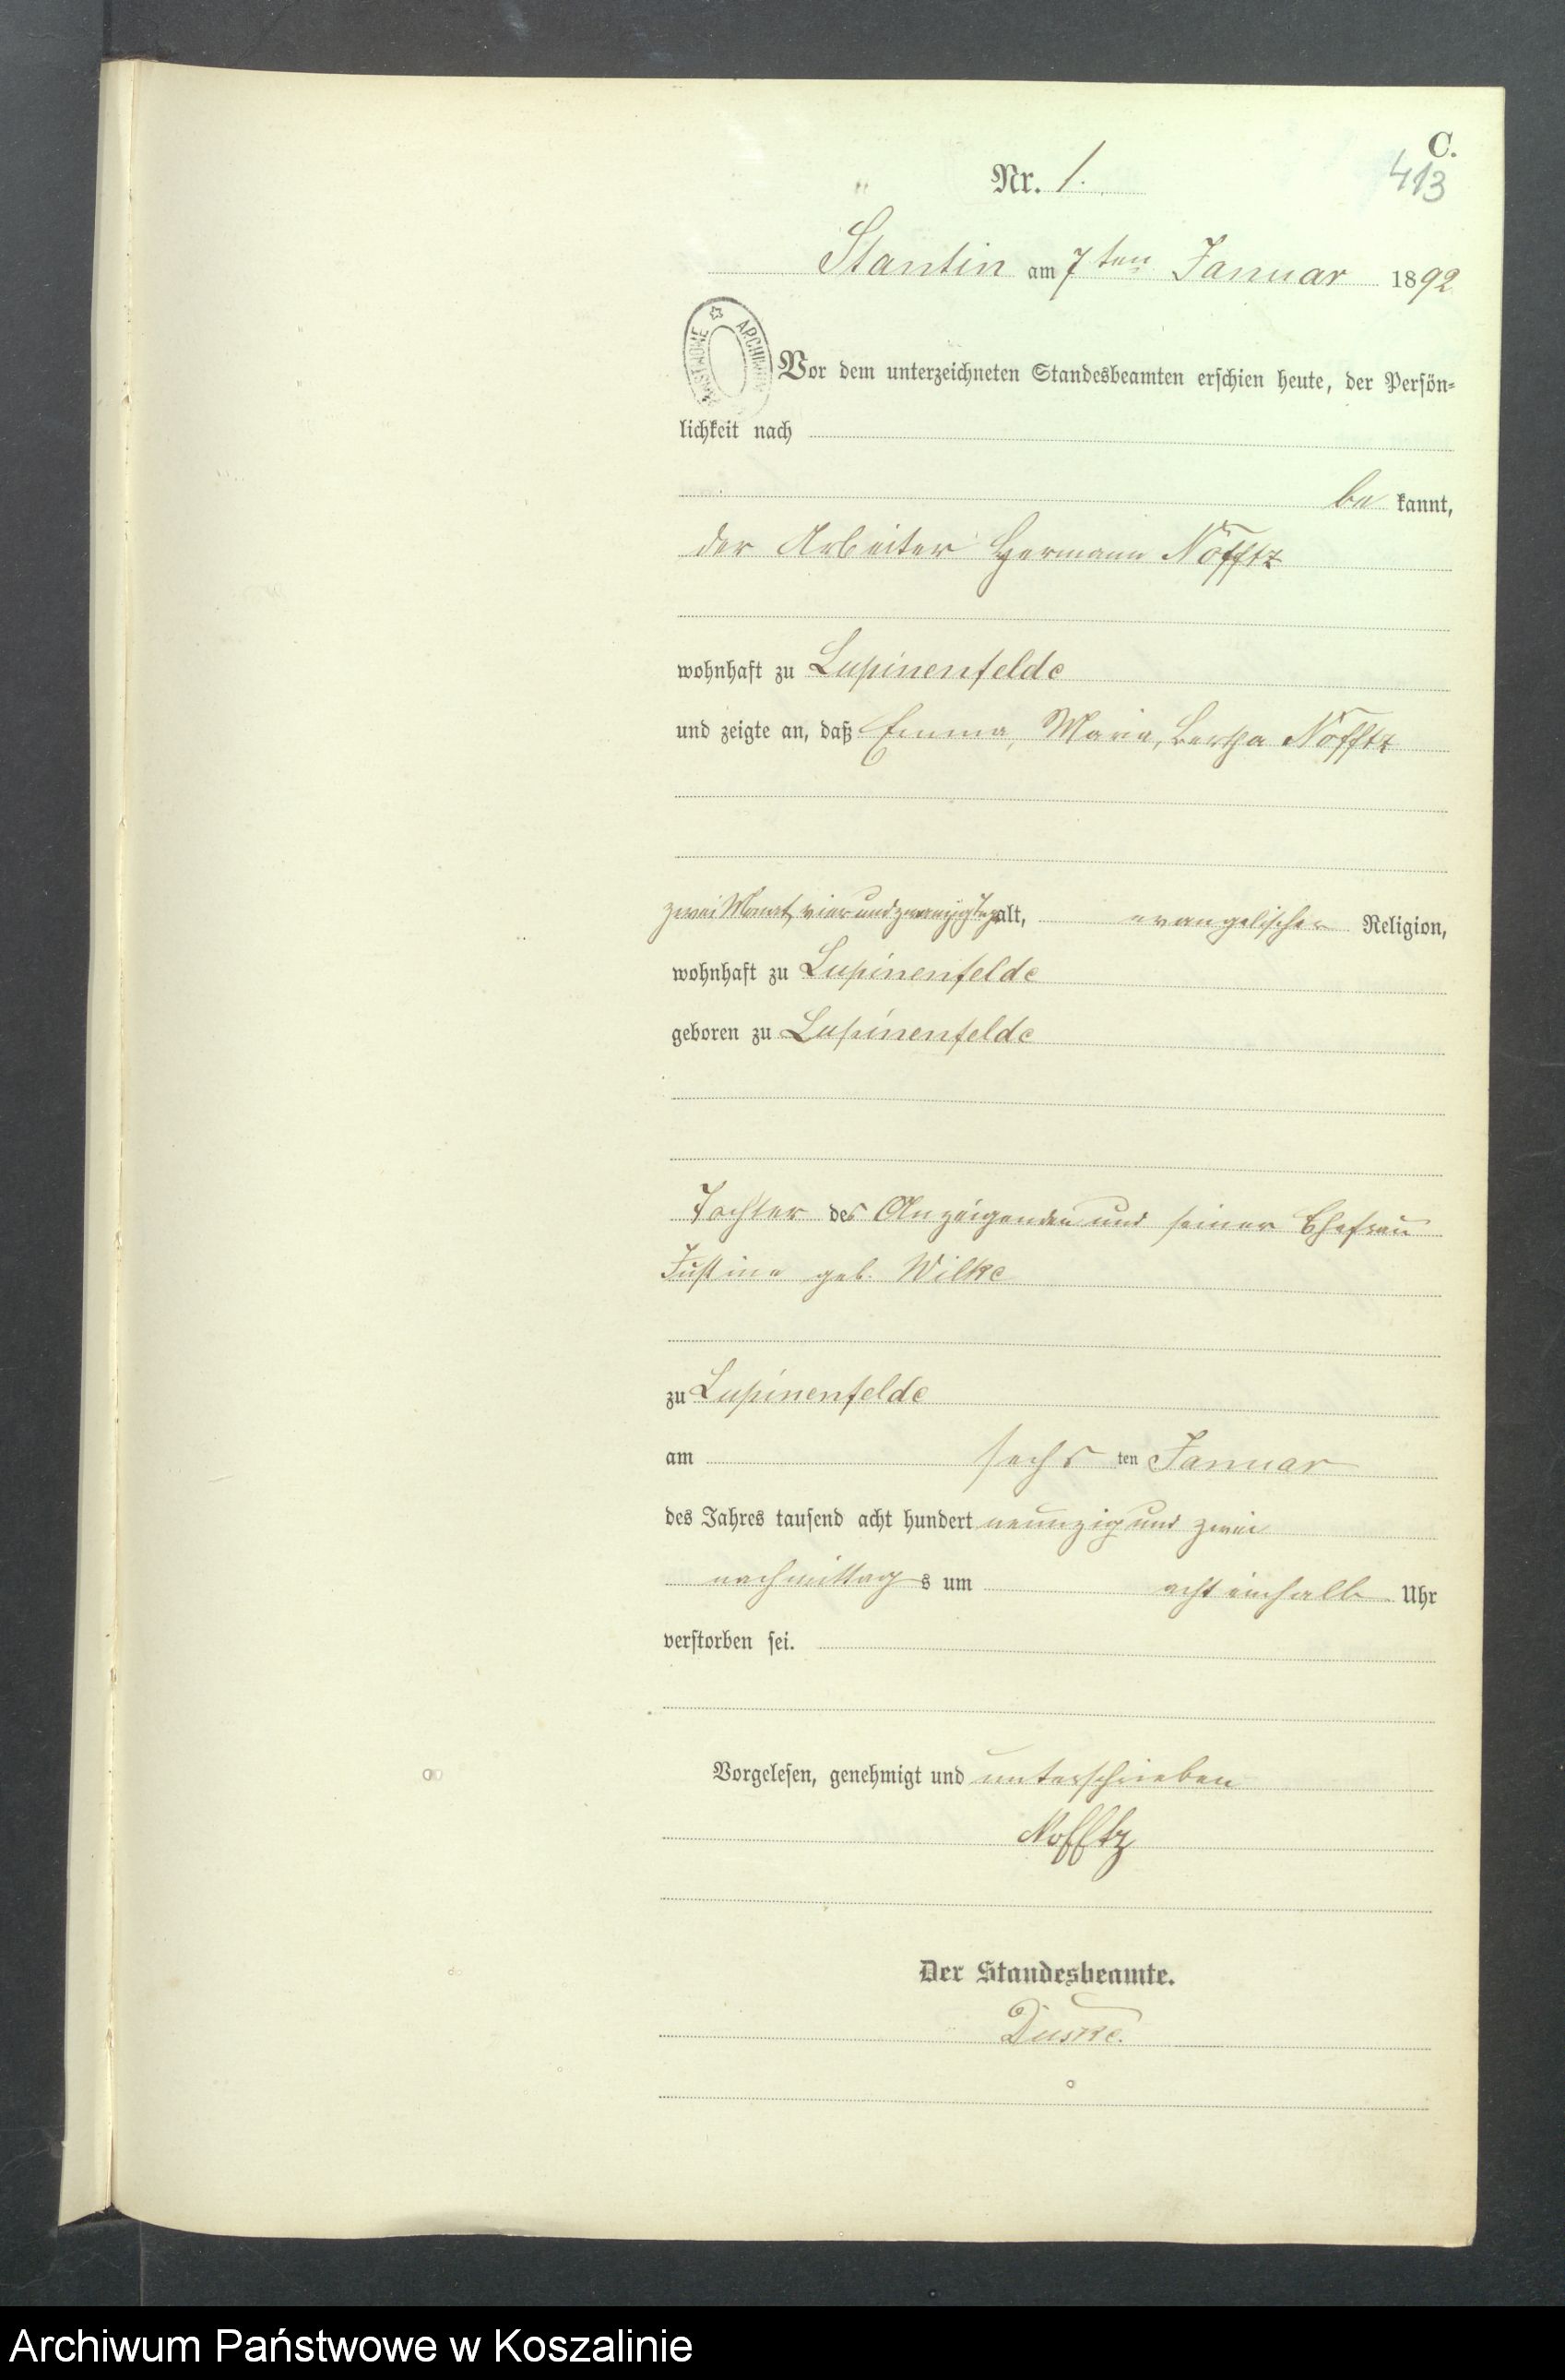 C.
Nr. 1.
413
Stantin am 7ten Januar 1892
ARCHIWUM
Vor dem unterzeichneten Standesbeamten erschien heute, der Persön-
lichkeit nach
be kannt,
der Arbeiter Hermann Nöfftz
wohnhaft zu Lupinenfelde
und zeigte an, daß Emma, Marie, Bertha Nöfftz
zwei Monat, vier und zwanzig Tage alt, evangelischer Religion,
wohnhaft zu Lupinenfelde
geboren zu Lupinenfelde
Tochter des Anzeigenden und seiner Ehefrau
Justine geb. Wilke
zu Lupinenfelde
am sechs ten Januar
des Jahres tausend acht hundert neunzig und zwei
nachmittag s um acht einhalb Uhr
verstorben sei.
Vorgelesen, genehmigt und unterschrieben
Nofftz
Der Standesbeamte.
Duske.
Archiwum Państwowe w Koszalinie